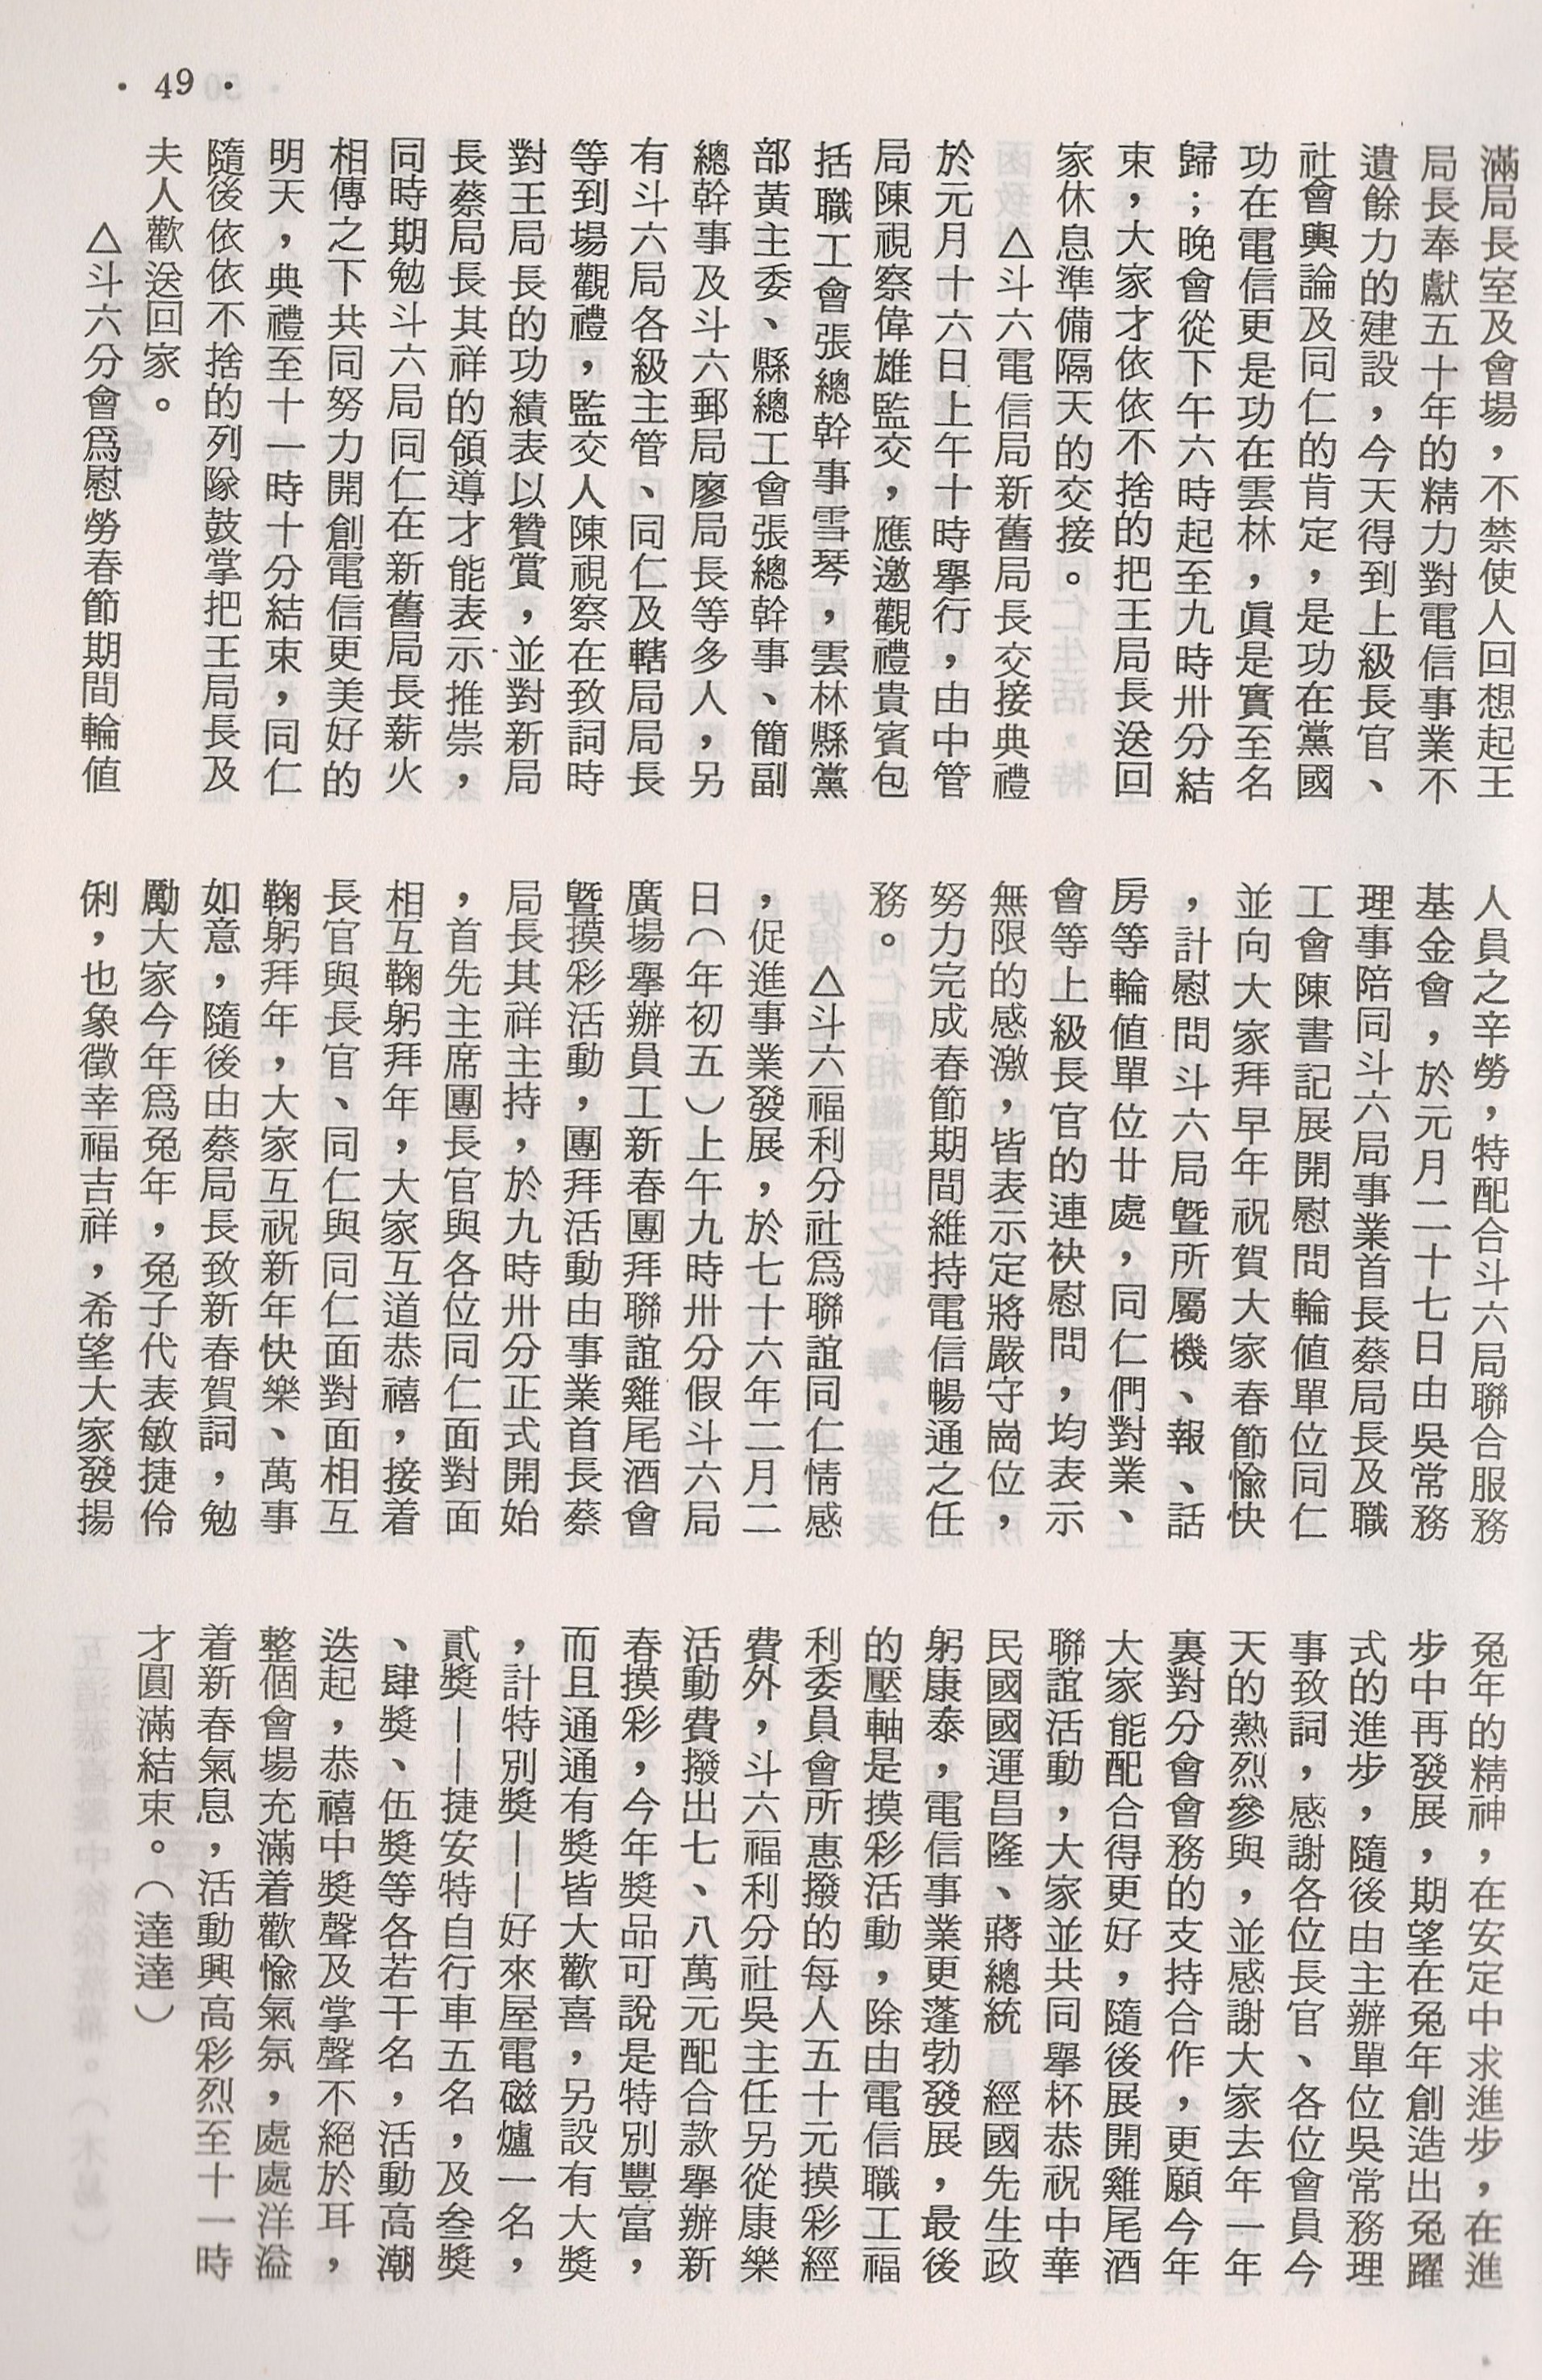 • 49 •
滿局長室及會場，不禁使人回想起王
局長奉獻五十年的精力對電信事業不
遺餘力的建設，今天得到上級長官、
社會輿論及同仁的肯定，是功在黨國
功在電信更是功在雲林，眞是實至名
歸；晚會從下午六時起至九時卅分結
束，大家才依依不捨的把王局長送回
家休息準備隔天的交接。
△斗六電信局新舊局長交接典禮
於元月十六日上午十時舉行，由中管
局陳視察偉雄監交，應邀觀禮貴賓包
括職工會張總幹事雪琴，雲林縣黨
部黃主委、縣總工會張總幹事、簡副
總幹事及斗六郵局廖局長等多人，另
有斗六局各級主管、同仁及轄局局長
等到場觀禮，監交人陳視察在致詞時
對王局長的功績表以贊賞，並對新局
長蔡局長其祥的領導才能表示推崇，
同時期勉斗六局同仁在新舊局長薪火
相傳之下共同努力開創電信更美好的
明天，典禮至十一時十分結束，同仁
隨後依依不捨的列隊鼓掌把王局長及
夫人歡送回家。
△斗六分會爲慰勞春節期間輪値
人員之辛勞，特配合斗六局聯合服務
基金會，於元月二十七日由吳常務
理事陪同斗六局事業首長蔡局長及職
工會陳書記展開慰問輪値單位同仁
並向大家拜早年祝賀大家春節愉快
，計慰問斗六局暨所屬機、報、話
房等輪値單位廿處，同仁們對業、
會等上級長官的連袂慰問，均表示
無限的感激，皆表示定將嚴守崗位，
努力完成春節期間維持電信暢通之任
務。
△斗六福利分社爲聯誼同仁情感
，促進事業發展，於七十六年二月二
日（年初五）上午九時卅分假斗六局
廣場舉辦員工新春團拜聯誼雞尾酒會
暨摸彩活動，團拜活動由事業首長蔡
局長其祥主持，於九時卅分正式開始
，首先主席團長官與各位同仁面對面
相互鞠躬拜年，大家互道恭禧，接着
長官與長官、同仁與同仁面對面相互
鞠躬拜年，大家互祝新年快樂、萬事
如意，隨後由蔡局長致新春賀詞，勉
勵大家今年爲兔年，兔子代表敏捷伶
俐，也象徵幸福吉祥，希望大家發揚
兔年的精神，在安定中求進步，在進
步中再發展，期望在兔年創造出兔躍
式的進步，隨後由主辦單位吳常務理
事致詞，感謝各位長官、各位會員今
天的熱烈參與，並感謝大家去年一年
裏對分會會務的支持合作，更願今年
大家能配合得更好，隨後展開雞尾酒
聯誼活動，大家並共同舉杯恭祝中華
民國國運昌隆、蔣總統　經國先生政
躬康泰，電信事業更蓬勃發展，最後
的壓軸是摸彩活動，除由電信職工福
利委員會所惠撥的每人五十元摸彩經
費外，斗六福利分社吳主任另從康樂
活動費撥出七、八萬元配合款舉辦新
春摸彩，今年獎品可說是特別豐富，
而且通通有獎皆大歡喜，另設有大獎
，計特別獎——好來屋電磁爐一名，
貳獎——捷安特自行車五名，及叁獎
、肆獎、伍獎等各若干名，活動高潮
迭起，恭禧中獎聲及掌聲不絕於耳，
整個會場充滿着歡愉氣氛，處處洋溢
着新春氣息，活動興高彩烈至十一時
才圓滿結束。（達達）